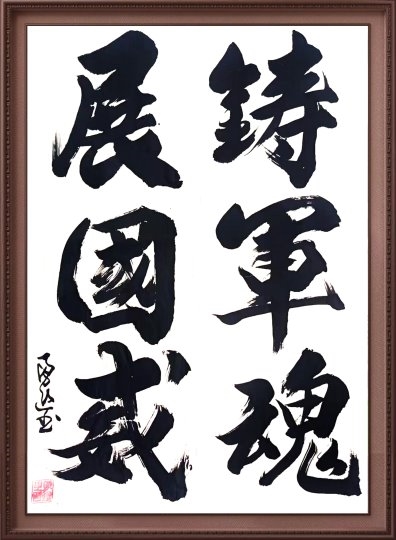 鋳軍魂
展國威